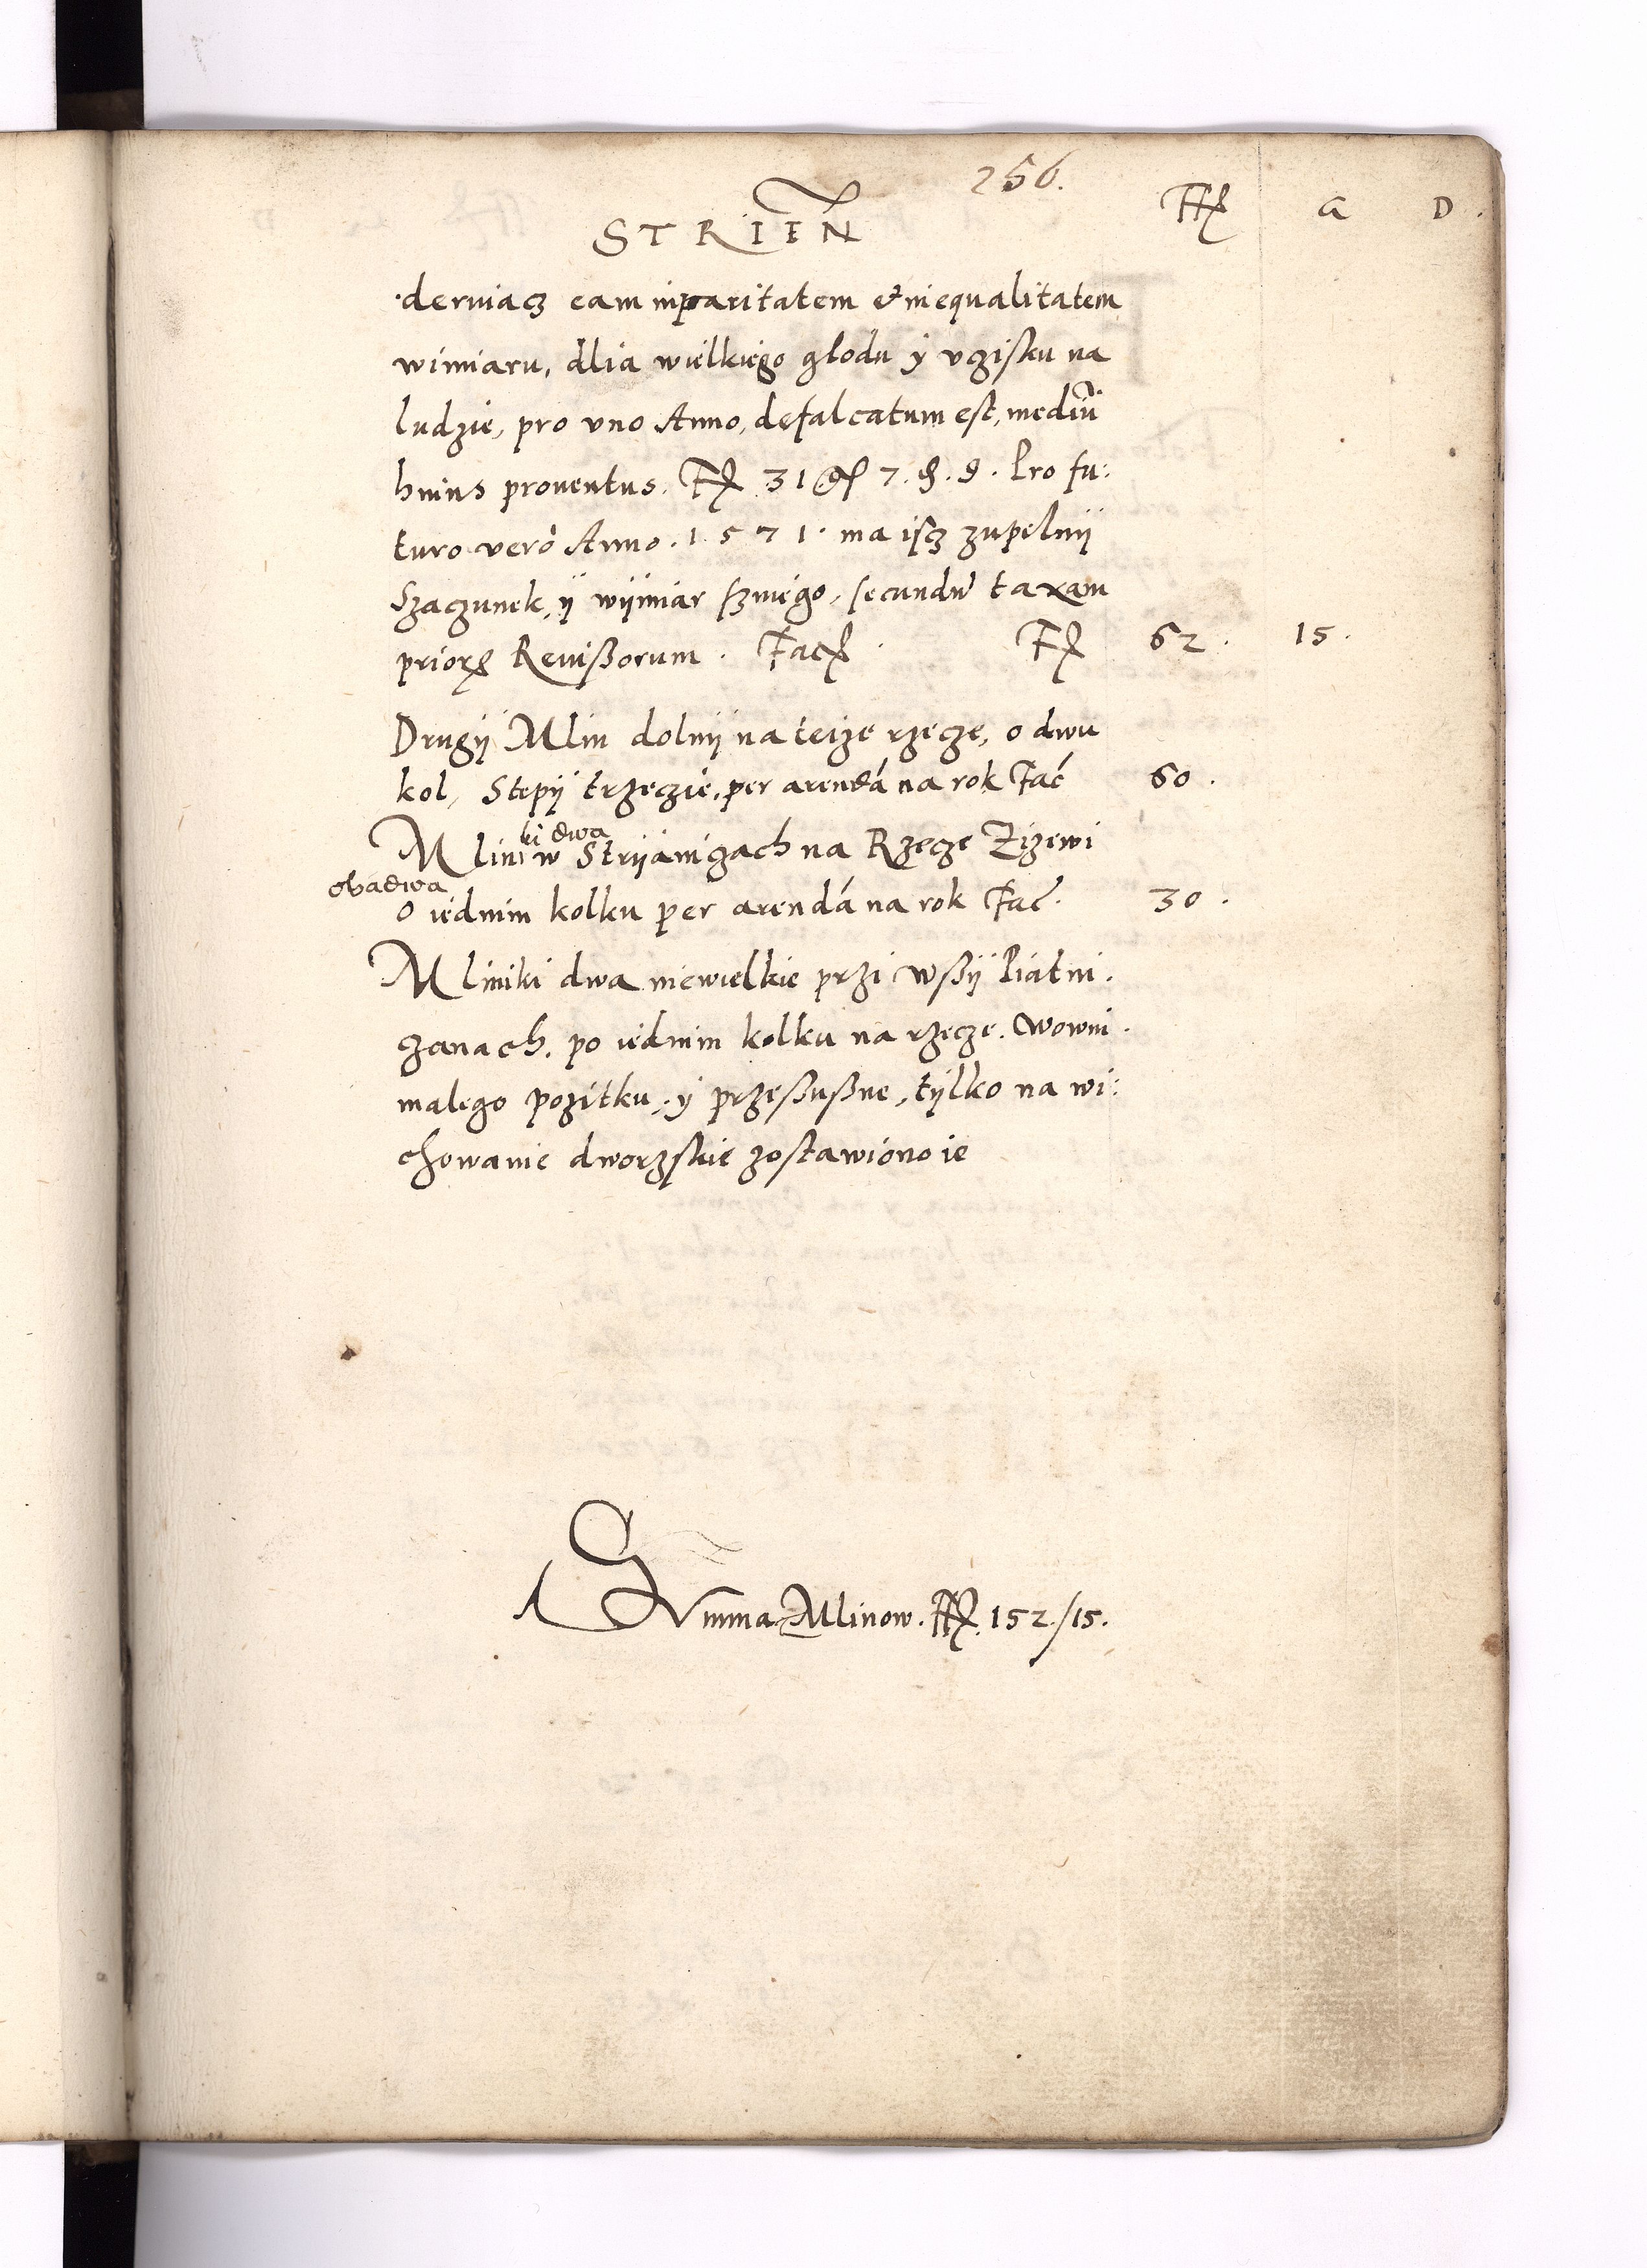 256.
STRIEÑ Fl G D.
derniacz eam inparitatem et inequalitatem
wimiaru, dlia wielkiego głodu ÿ vczisku na
ludzie, pro vno Anno, defalcatum est, mediũ
huius prouentus. Fl 31 gr 7. d. 9. Pro fu:
turo verò Anno. 1571. ma iscz zupelnÿ
Szaczunek, ÿ wÿmiar szniego, secundũ taxam
prior Reuißorum. Fac Fl 62. 15.
Drugÿ Mlin dolnÿ na teize rzecze, o dwu
kol, Stepÿ trzeczie, per arendá na rok Fac 60.
ki dwa
Mlini w Strÿanczach na Rzecze Zizewi
obadwa
o iednim kolku per arendá na rok Fac. 30.
Mliniki dwa niewielkie przi wßÿ Piatni.
czanach. po iednim kolku na rzecze. Wowni.
malego pozitku, ÿ przeßußne, tÿlko na wi:
chowanie dworzskie zostawiono ie
Summa Mlinow. Fl. 152./15.